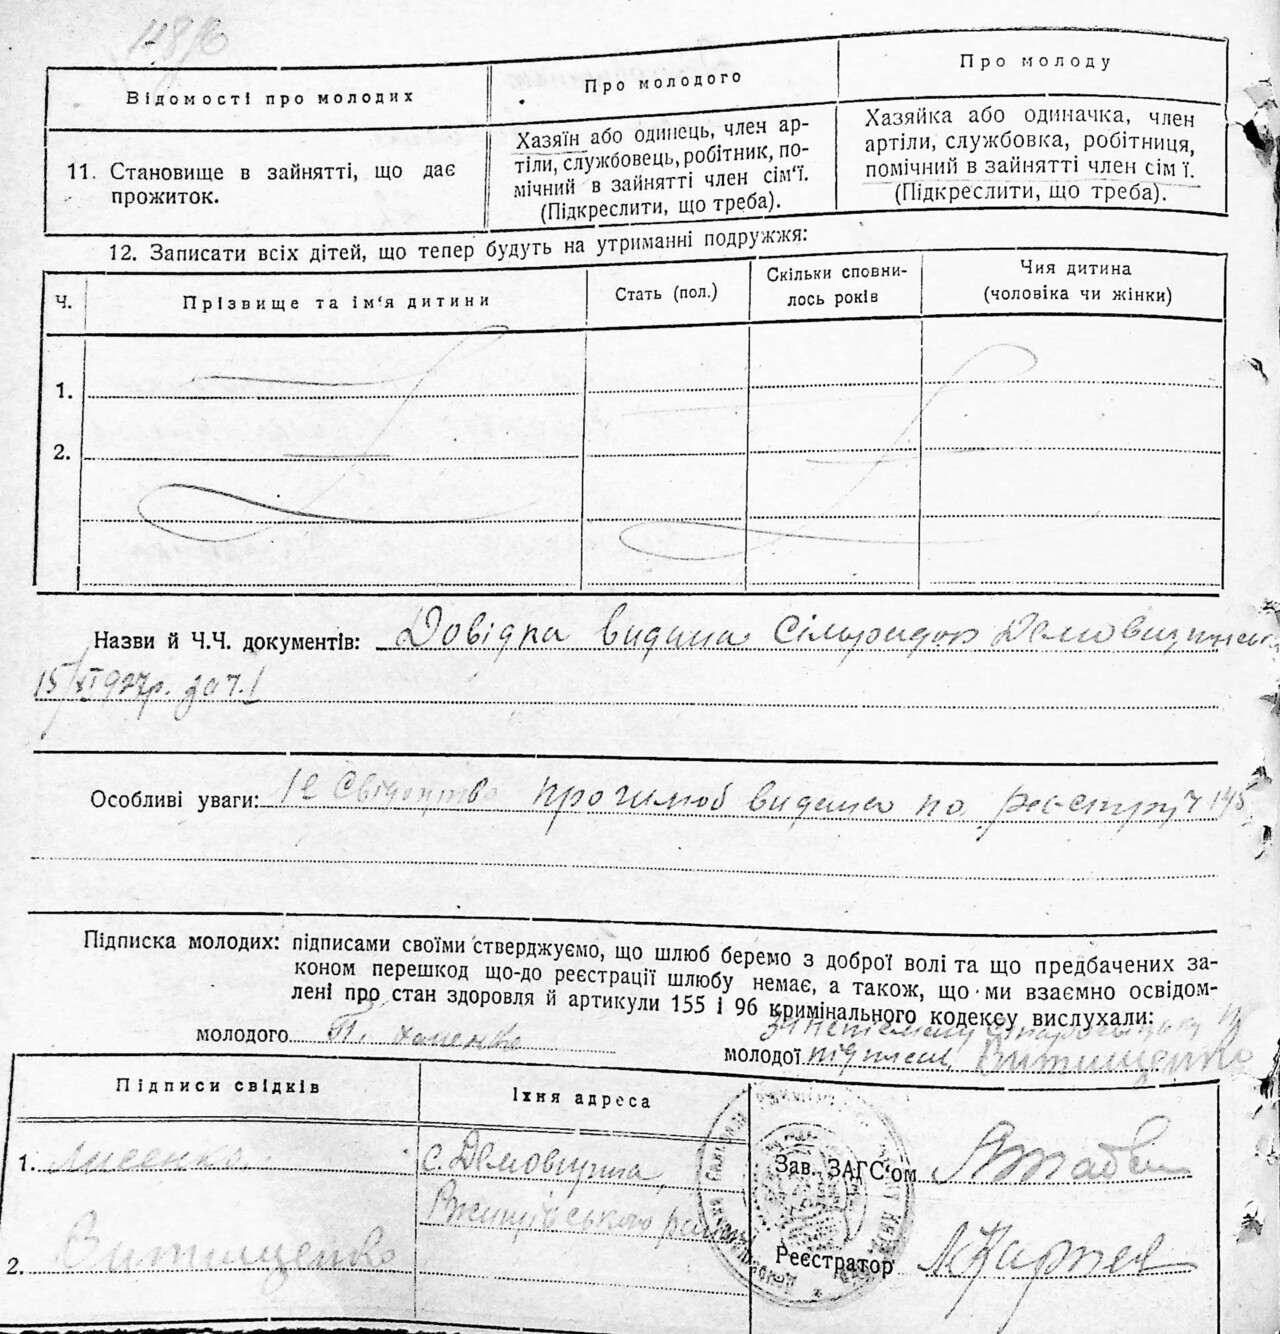 Відомості про молодих
Про молодого
Про молоду
11. Становище в зайнятті, що дає
прожиток.
Хазяїн або одинець, член ар-
тіли, службовець, робітник, по-
мічний в зайнятті член сім'ї.
(Підкреслити, що треба).
Хазяйка або одиначка, член
артіли, службовка, робітниця,
помічний в зайнятті член сім ї.
(Підкреслити, що треба).
12. Записати всіх дітей, що тепер будуть на утриманні подружжя:
Ч.
Прізвище та ім'я дитини
Стать (пол.)
Скільки сповни-
лось років
Чия дитина
(чоловіка чи жінки)
1.
2.
Назви й Ч.Ч. документів: Довідка видана Сільрадою
15/XI 927р. за ч. 1
Особливі уваги: Свідоцтво про шлюб видано по реєстру ч 145
Підписка молодих: підписами своїми стверджуємо, що шлюб беремо з доброї волі та що предбачених за-
коном перешкод що-до реєстрації шлюбу немає, а також, що ми взаємно освідом-
лені про стан здоровля й артикули 155 і 96 кримінального кодексу вислухали:
молодого П.
молодої підписал Витищенко
Підписи свідків
Їхня адреса
1. Лисенко
с. Демовщина,
Зав. ЗАГС'ом
2. Витищенко
району
Реєстратор